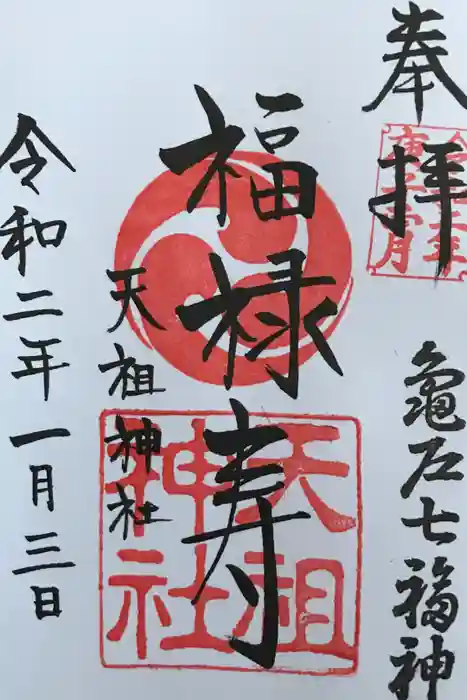 奉拝
亀戸七福神
福禄寿
天祖神社
令和二年一月三日
天祖神社